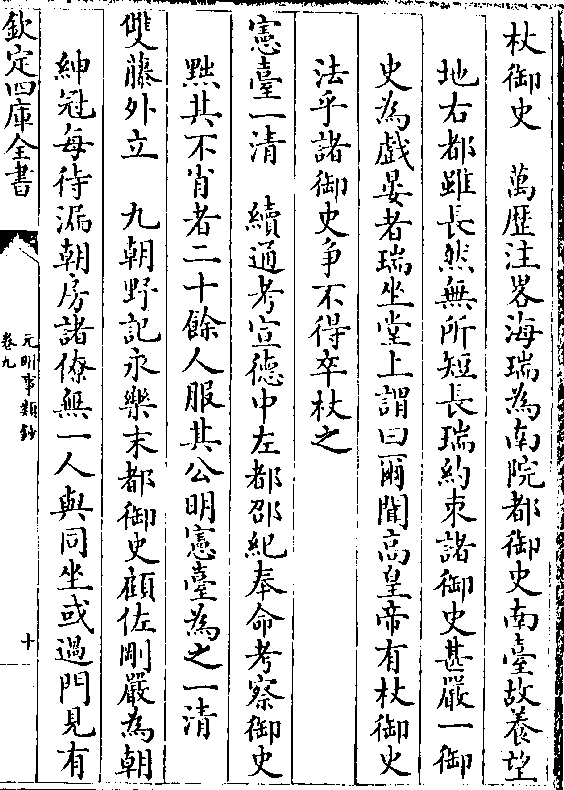 杖御史　萬歷注畧海瑞為南院都御史南臺故養望
地右都雖長然無所短長瑞約束諸御史甚嚴一御
史為戲宴者瑞坐堂上謂曰爾聞高皇帝有杖御史
法乎諸御史爭不得卒杖之
憲臺一清　續通考宣德中左都邵玘奉命考察御史
黜其不肖者二十餘人服其公明憲臺為之一清
雙藤外立　九朝野記永樂末都御史顧佐剛嚴為朝
紳冠每待漏朝房諸僚無一人與同坐或過門見有
欽定四庫全書
元明事類鈔
卷九
十